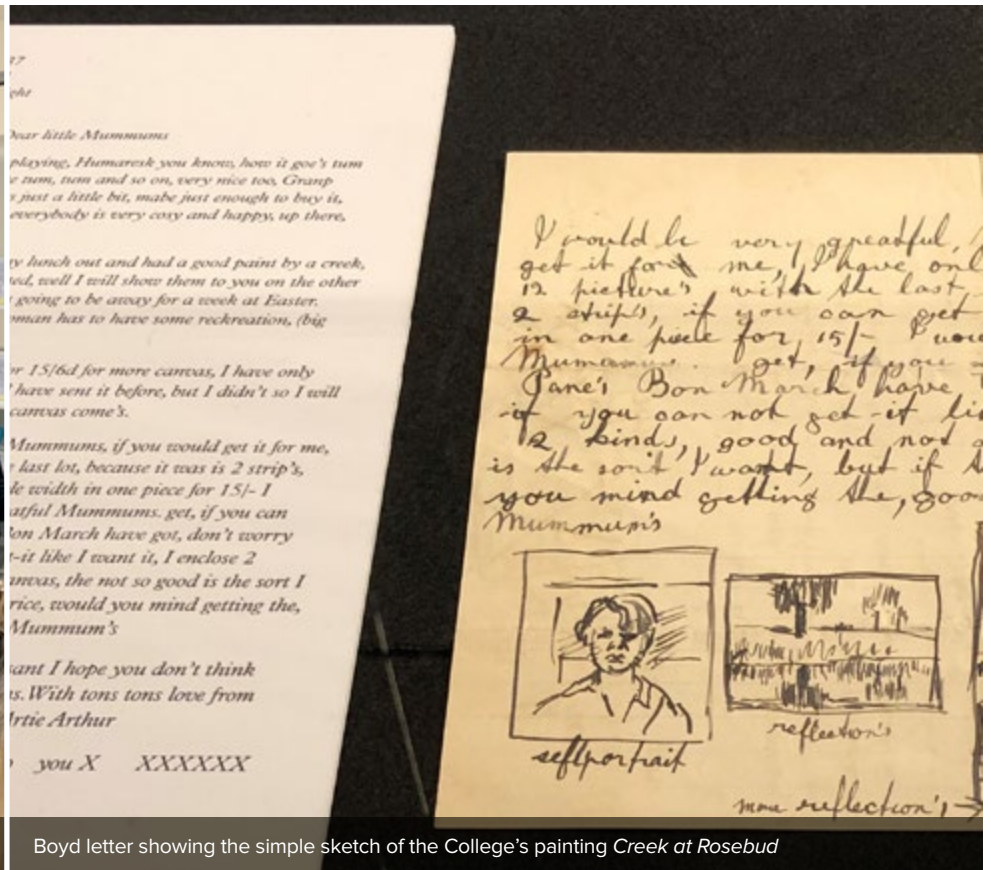 17
ght
Dear little Mummums
playing, Humaresk you know, how it goe's tum
e tum, tum and so on, very nice too, Granp
s just a little bit, mabe just enough to buy it,
everybody is very cosy and happy, up there,
y lunch out and had a good paint by a creek,
ed, well I will show them to you on the other
going to be away for a week at Easter.
man has to have some reckreation, (big
r 15/6d for more canvas, I have only
have sent it before, but I didn't so I will
canvas come's.
Mummums, if you would get it for me,
last lot, because it was is 2 strip's,
le width in one piece for 15/- I
atful Mummums. get, if you can
on March have got, don't worry
-it like I want it, I enclose 2
nvas, the not so good is the sort I
rice, would you mind getting the,
Mummum's
ant I hope you don't think
s. With tons tons love from
Artie Arthur
you X XXXXXX
I would be very greadful,
get it for me, I have onl
12 picture's with the last
2 strip's, if you can get
in one piece for 15/- I wou
Mummums. get, if you
Pane's Bon March have
if you can not get-it li
2 kinds, good and not
is the sort I want, but if
you mind getting the, goo
Mummum's
seflportrait
reflection's
more reflection's
Boyd letter showing the simple sketch of the College's painting Creek at Rosebud